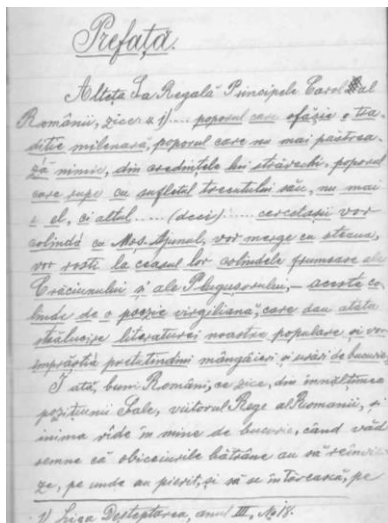 Prefață.
Alteța Sa Regală Principele Carol al
României, zice: 1) .... poporul care
tradiție milenară, poporul care nu mai păstrea-
ză nimic, din credințele lui străvechi, poporul
care rupe cu sufletul trecutului său, nu mai
e el, ci altul..... (deci)..... cercetașii vor
colindă cu Moș-Ajunul, vor merge cu steaua,
vor rosti la ceasul lor colindele frumoase ale
Crăciunului și ale Plugușorului, - aceste co-
linde de o poezie virgiliană, care dau atâta
strălucire literaturei noastre populare și vor
împrăștia pretutindeni mângâieri și urări de bucurie.
Iată, buni Români, ce zice, din înnălțimea
pozițiunii Sale, viitorul Rege al Romaniei, și
inima râde în mine de bucurie, când văd
semne că obiceiurile bătrâne au să reînvi-
ze, pe unde au pierit, și să se întărească, pe
1) Liga Deșteptarea, anul III, No 18.